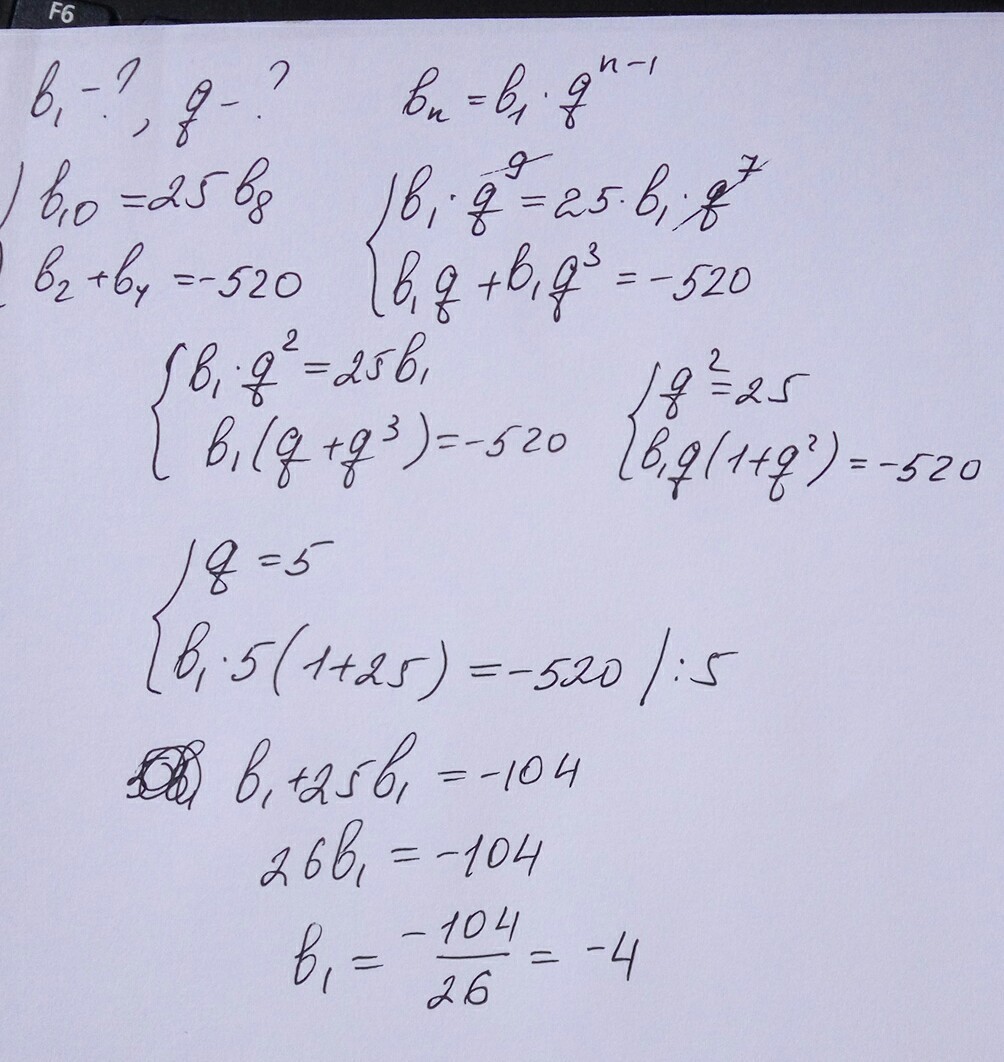 F6
b₁ - ?, q - ? bₙ = b₁ · qⁿ⁻¹
b₁₀ = 25 b₈ { b₁ · q⁹ = 25 · b₁ · q⁷
b₂ + b₄ = -520 b₁q + b₁q³ = -520
{ b₁ · q² = 25b₁ { q² = 25
b₁(q + q³) = -520 b₁q(1+q²) = -520
{ q = 5
b₁ · 5(1+25) = -520 | : 5
b₁ + 25b₁ = -104
26b₁ = -104
b₁ = -104/26 = -4